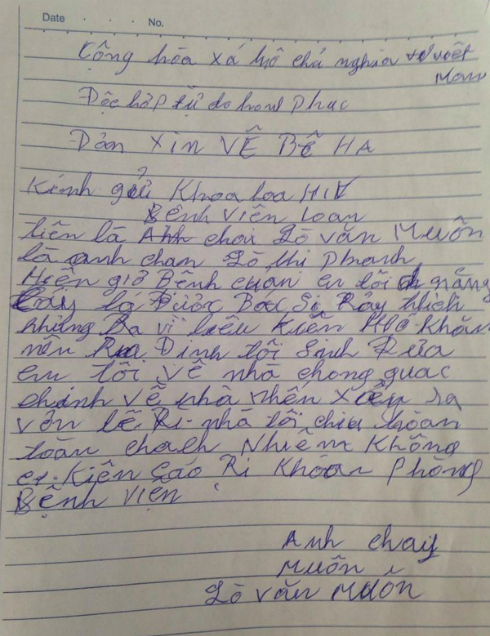 Date No.
Cộng hòa xá hộ chả nghĩa viêt
Mam
Độc hợp tử do hanh phuc
Dản XIN VỄ BẼ HA
Kính gửi Khoa loa HIV
Bệnh Viên Loan
tiên là Anh chai Lò văn Muôn
là anh chan Lò thi phanh
Hiên giờ Bênh cuản en tôi nặng
Đay la Được Bac Si Rảy thich
nhưng Ra vì liêu Kiên Khăn
nên Rua Đinh tôi Sinh Đưa
em tôi về nhà chong quac
chảnh về nhà nhến Xảy ra
vản lê Ri nhà tôi chiu hoan
toàn chach Nhiêm Không
co Kiên Cáo Ri Khoan phòng
Bệnh viên
Anh chay
Muôn
Lò văn Muôn